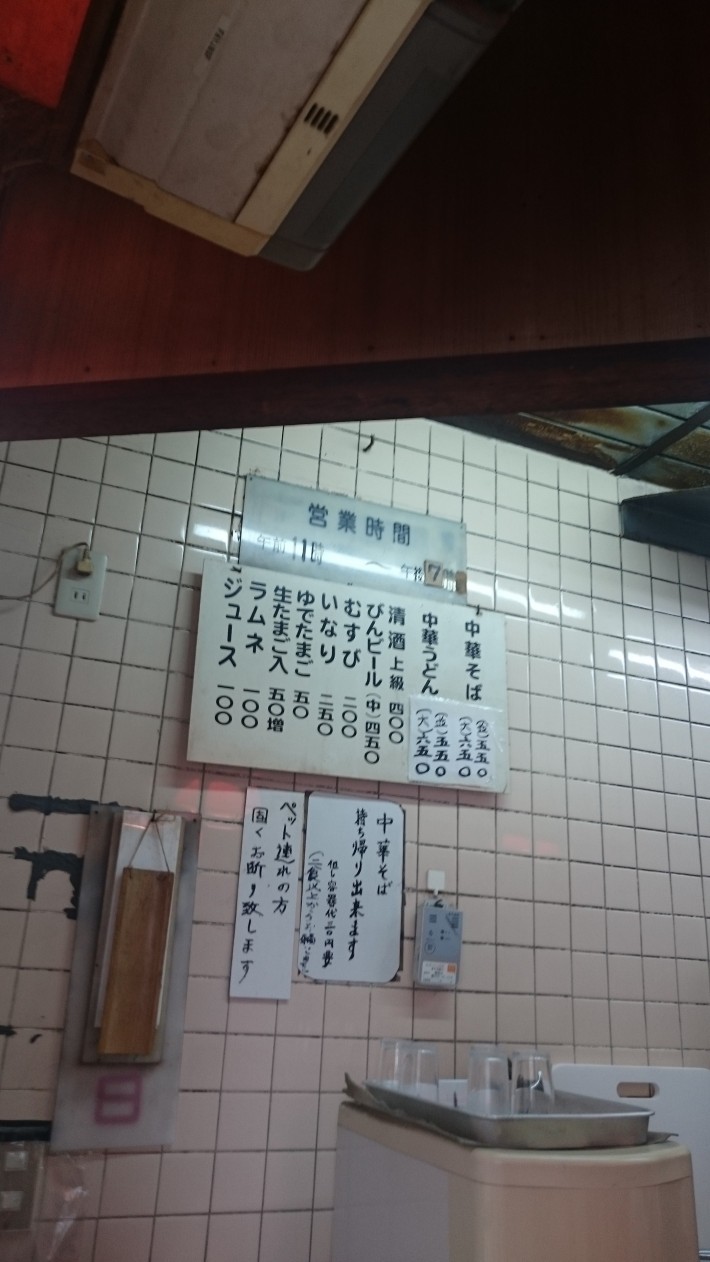 営業時間
午前11時 〜 午後7時
中華そば (並)五五〇 (大)六五〇
中華うどん (並)五五〇 (大)六五〇
清酒 上級 四〇〇
びんビール (中)四五〇
むすび 二〇〇
いなり 二五〇
ゆでたまご 五〇
生たまご入 五〇増
ラムネ 一〇〇
ジュース 一〇〇
中華そば
持ち帰り出来ます
ペット連れの方
固くお断り致します
日